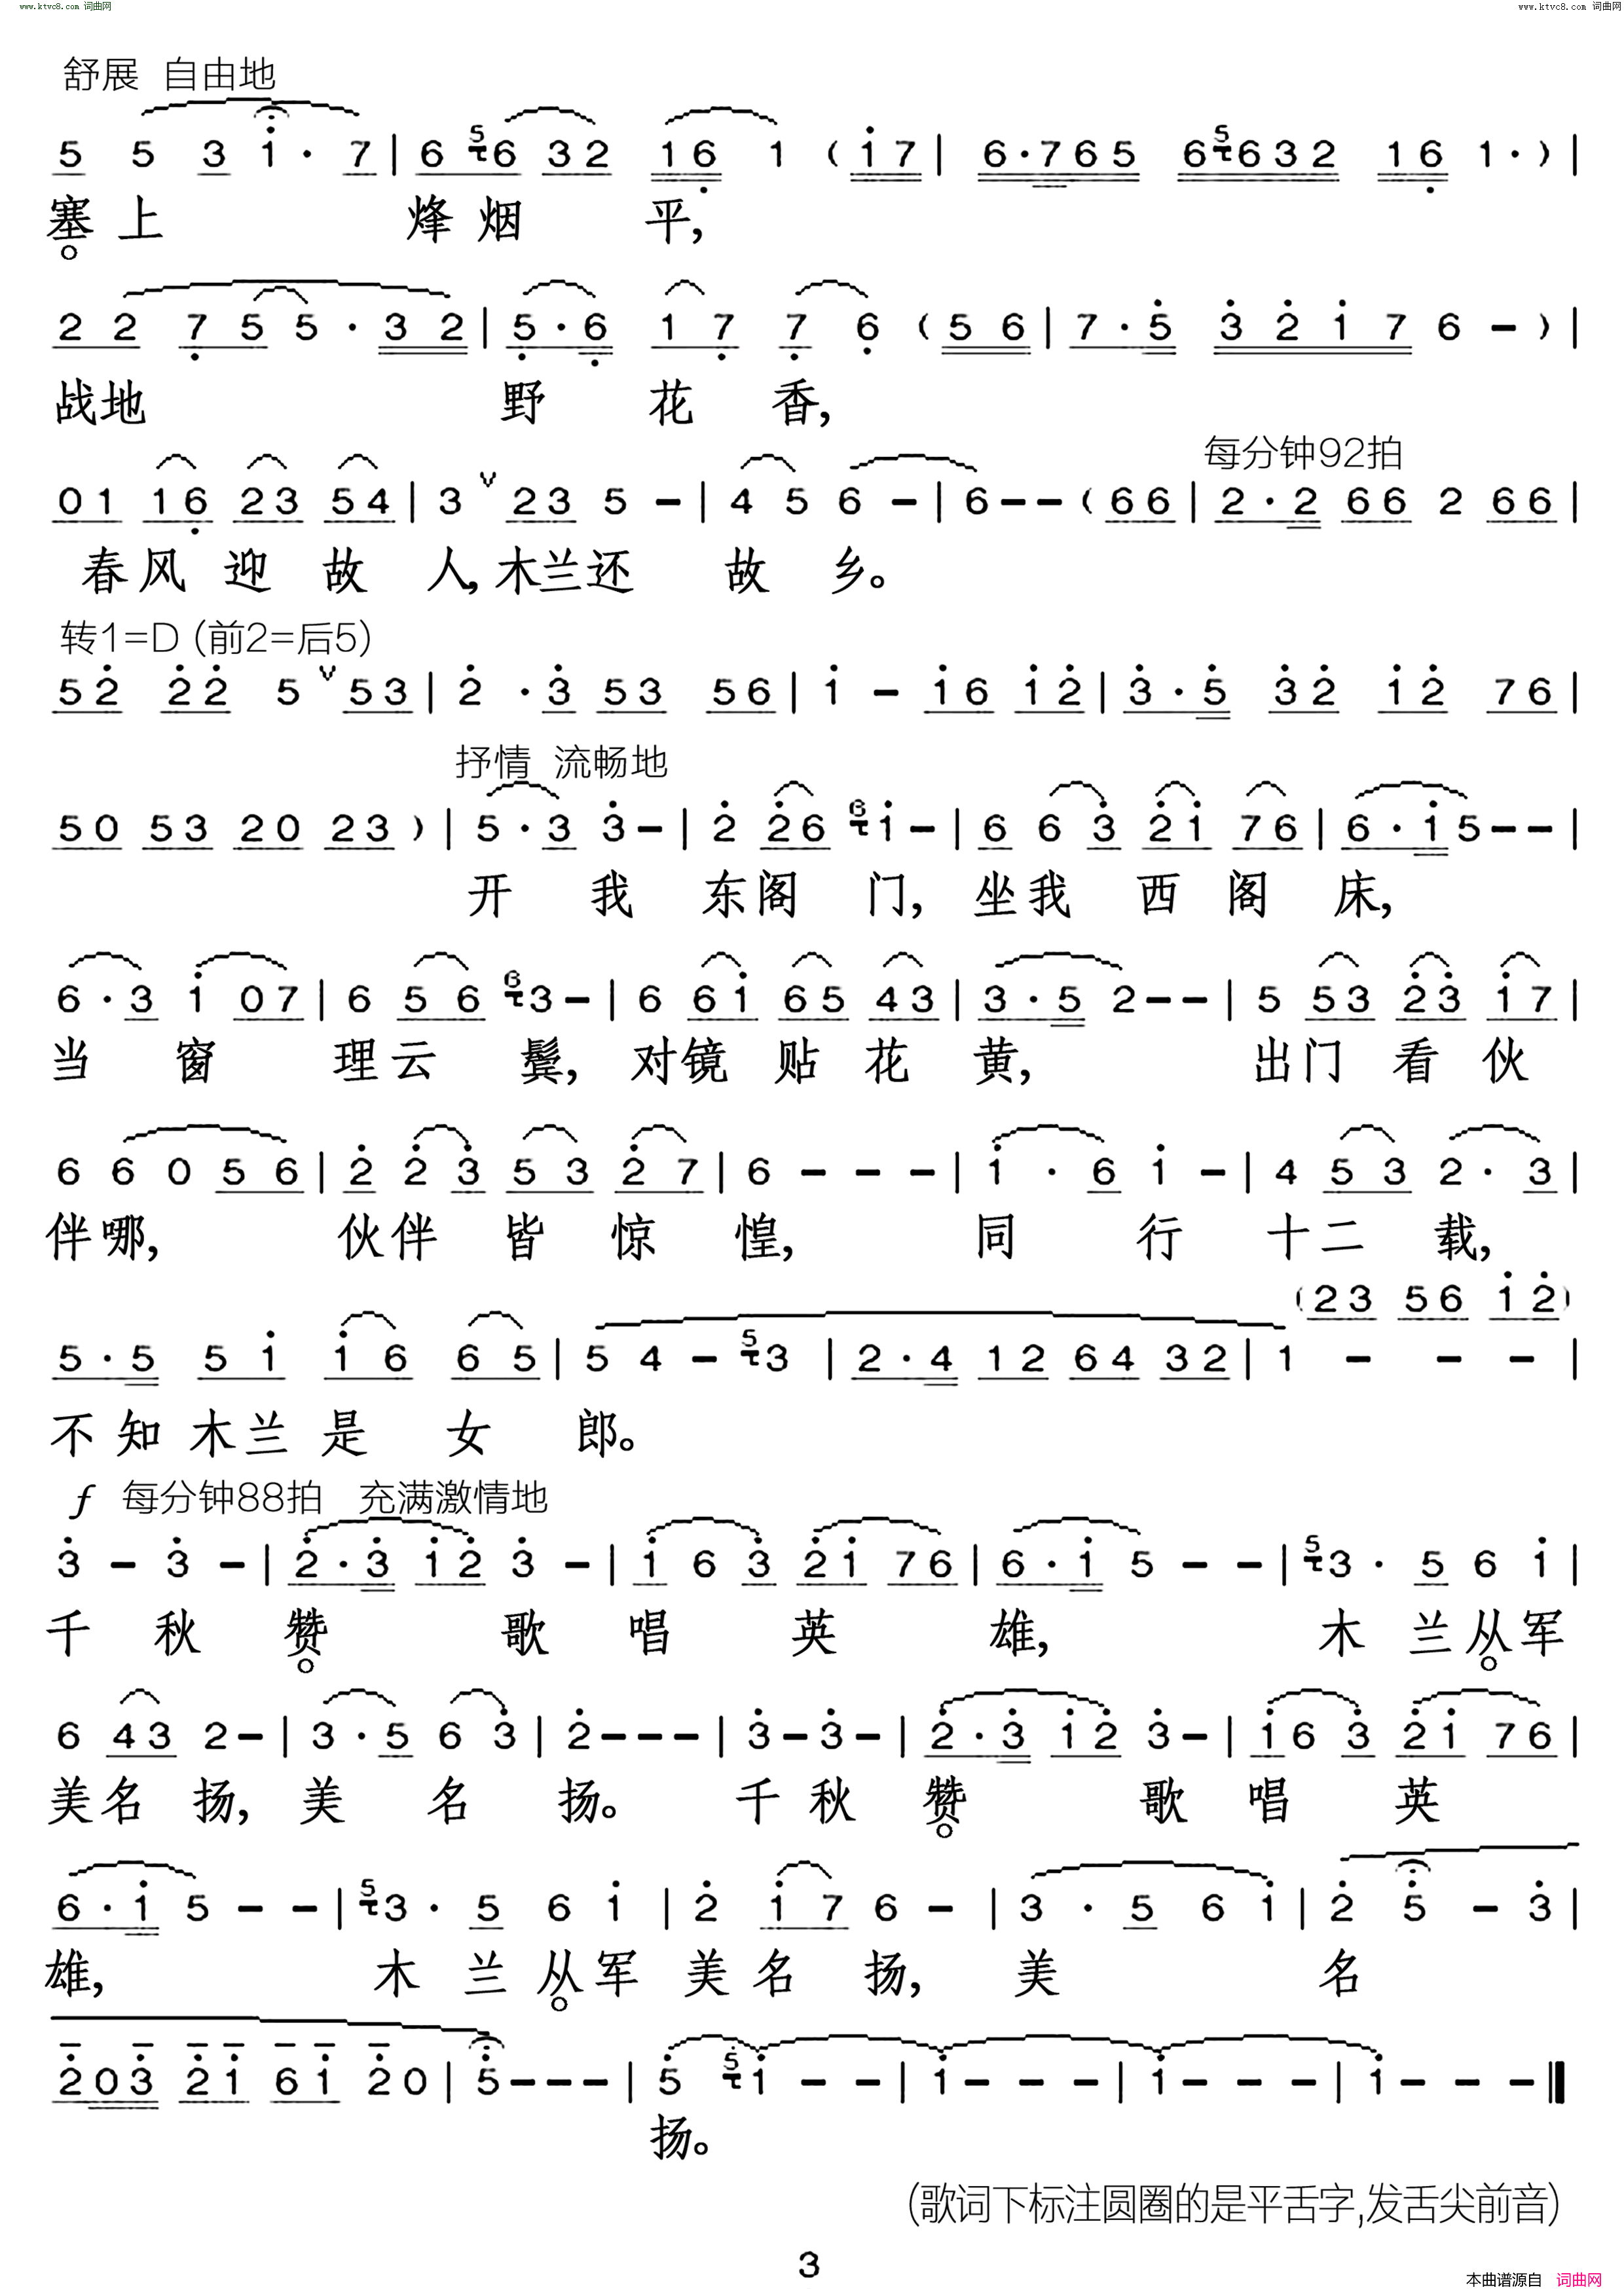 www.ktvc8.com 词曲网
www.ktvc8.com 词曲网
舒展 自由地
5 5 3 1 · 7 | 6 5 6 3 2 1 6 1 ( 1 7 | 6 · 7 6 5 6 5 6 3 2 1 6 1 · ) |
塞上 烽烟 平,
2 2 7 5 5 · 3 2 | 5 · 6 1 7 7 6 ( 5 6 | 7 · 5 3 2 1 7 6 - ) |
战地 野 花 香,
每分钟92拍
0 1 1 6 2 3 5 4 | 3 ∨ 2 3 5 - | 4 5 6 - | 6 - - ( 6 6 | 2 · 2 6 6 2 6 6 |
春风 迎 故 人,木兰还 故 乡。
转1=D (前2=后5)
5 2 2 2 5 ∨ 5 3 | 2 · 3 5 3 5 6 | 1 - 1 6 1 2 | 3 · 5 3 2 1 2 7 6 |
抒情 流畅地
5 0 5 3 2 0 2 3 ) | 5 · 3 3 - | 2 2 6 6 1 - | 6 6 3 2 1 7 6 | 6 · 1 5 - - |
开 我 东阁 门, 坐我 西 阁 床,
6 · 3 1 0 7 | 6 5 6 6 3 - | 6 6 1 6 5 4 3 | 3 · 5 2 - - | 5 5 3 2 3 1 7 |
当 窗 理云 鬓, 对镜 贴 花 黄, 出门 看 伙
6 6 0 5 6 | 2 2 3 5 3 2 7 | 6 - - - | 1 · 6 1 - | 4 5 3 2 · 3 |
伴哪, 伙伴 皆 惊 惶, 同 行 十二 载,
( 2 3 5 6 1 2 )
5 · 5 5 1 1 6 6 5 | 5 4 - 5 3 | 2 · 4 1 2 6 4 3 2 | 1 - - - |
不 知 木兰 是 女 郎。
f 每分钟88拍 充满激情地
3 - 3 - | 2 · 3 1 2 3 - | 1 6 3 2 1 7 6 | 6 · 1 5 - - | 5 3 · 5 6 1 |
千 秋 赞 歌 唱 英 雄, 木 兰从军
6 4 3 2 - | 3 · 5 6 3 | 2 - - - | 3 - 3 - | 2 · 3 1 2 3 - | 1 6 3 2 1 7 6 |
美名 扬, 美 名 扬。 千 秋 赞 歌 唱 英
6 · 1 5 - - | 5 3 · 5 6 1 | 2 1 7 6 - | 3 · 5 6 1 | 2 5 - 3 |
雄, 木 兰 从军 美 名 扬, 美 名
2 0 3 2 1 6 1 2 0 | 5 - - - | 5 5 1 - - | 1 - - - | 1 - - - | 1 - - - ‖
扬。
(歌词下标注圆圈的是平舌字,发舌尖前音)
3
本曲谱源自 词曲网